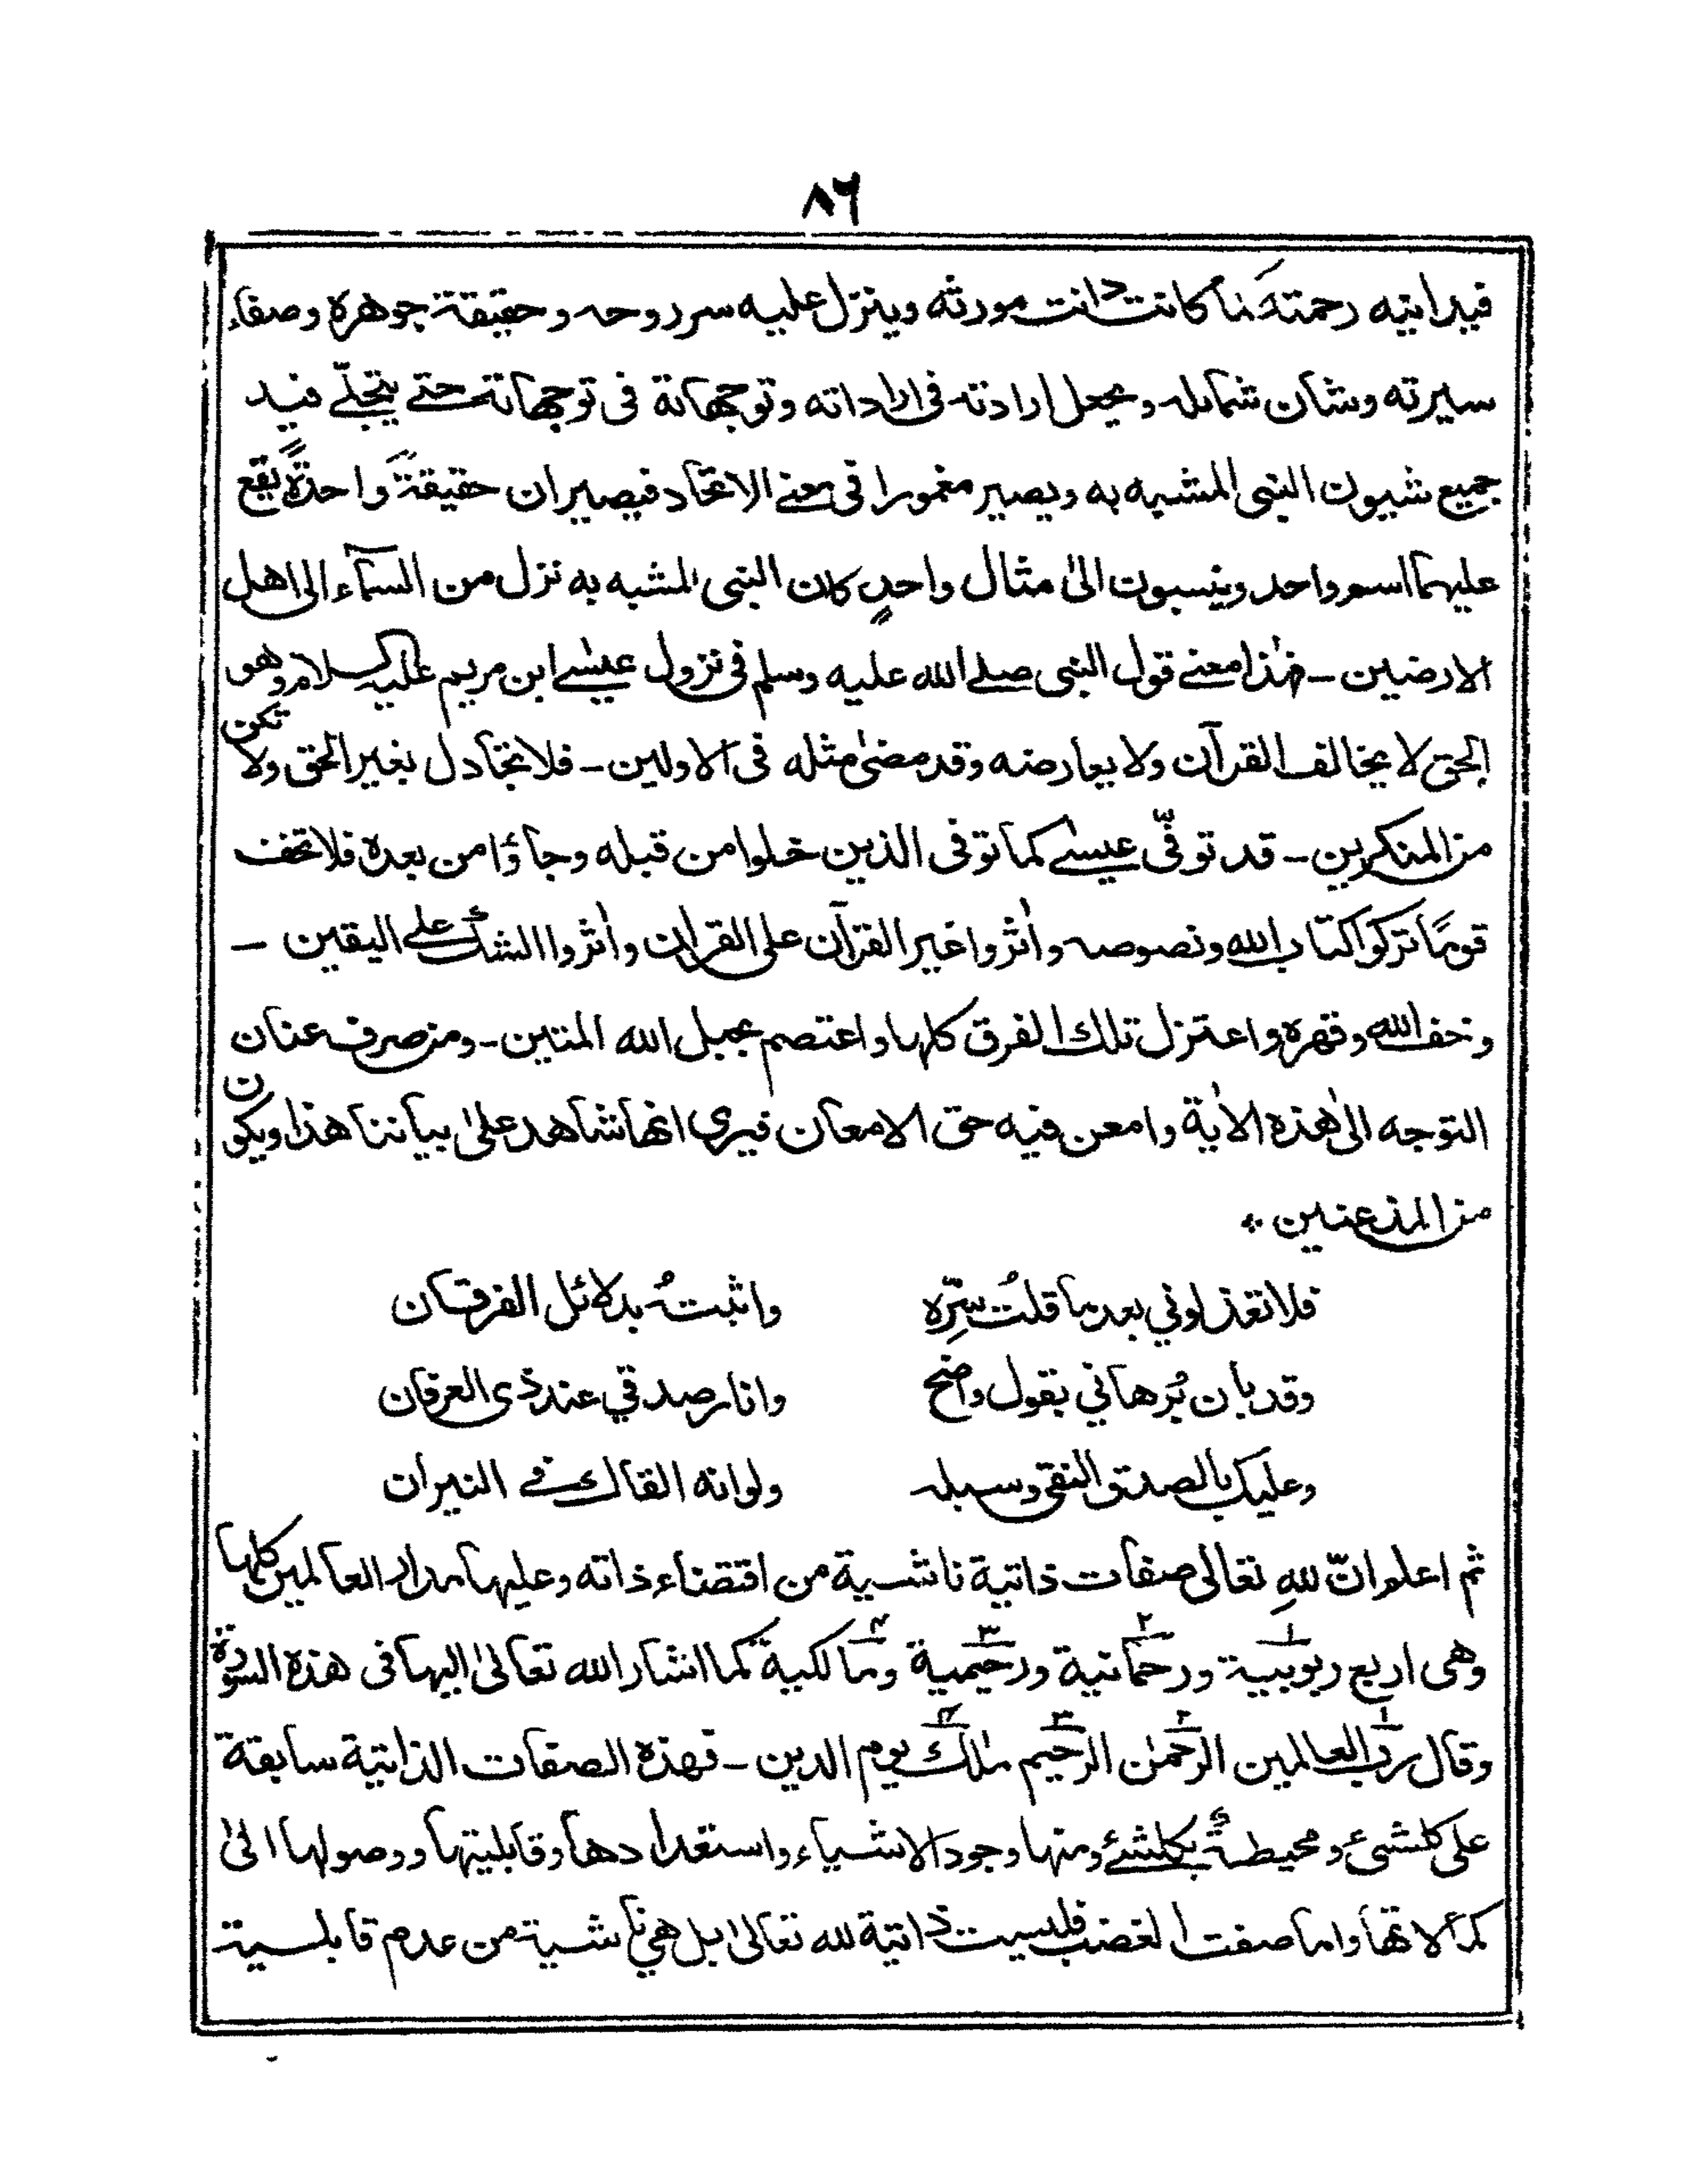 ٨٦
فيدانيه رحمته منا كانت دانت مورثه وينزل عليه سر روحه وحقيقة جوهره وصفاء
سيرته وشان شمايله ويجعل ارادته فى اراداته وتوجهاته فى توجهاته حتے يتجلّے فيه
جميع شيون النبى المشبه به ويصير مغمورا فى معنے الاتحاد فيصيران حقيقةً واحدةً يقع
عليهما اسم واحد وينسبون الىٰ مثال واحدٍ كان النبى المشبه به نزل من السمآء الى اهل
الارضين ـ فهٰذا معنے قول النبى صلے الله عليه وسلم فى نزول عيسٰے ابن مريم عليه السلام وهو
الحق لا يخالف القرآن ولا يعارضه وقد مضىٰ مثله فى الاولين ـ فلا تجادل بغير الحق ولا تكن
من المنكرين ـ قد توفّى عيسٰے كما توفى الذين خلوا من قبله وجاؤا من بعده فلا تخف
قومًا تركوا كتاب الله ونصوصه واٰثروا غير القرآن على القراٰن واٰثروا الشك علے اليقين ـ
وخف الله وقهره واعتزل تلك الفرق كلها واعتصم بحبل الله المتين ـ ومن صرف عنان
التوجه الىٰ هٰذه الاٰية وامعن فيه حق الامعان فيرى انها شاهد علىٰ بياننا هذا ويكون
من المذعنين ۰
فلا تعذلوني بعد ما قلتُ سِرّه واثبتُه بدلائل الفرقان
وقد بان بُرهاني بقول واضح وانار صدقي عند ذى العرفان
وعليك بالصدق النقى وسبله ولو انه القاك فے النيران
ثم اعلم انّ للهِ تعالى صفات ذاتية ناشية من اقتضاء ذاته وعليها مدار العالمين كلها
وهى اربع ربوبية ١ ورحمانية ٢ ورحيمية ٣ ومالكية ٤ كما اشار الله تعالىٰ اليها فى هذه السورة
وقال رب العالمين ١ الرحمٰن ٢ الرحيم ٣ مٰلك ٤ يوم الدين ـ فهذه الصفات الذاتية سابقة
على كلشىٔ ومحيطة بكلشئے ومنها وجود الاشياء واستعدادها وقابليتها ووصولها الىٰ
كمالاتها واما صفت الغضب فليست ذاتية لله تعالىٰ بل هي ناشية من عدم قابلية